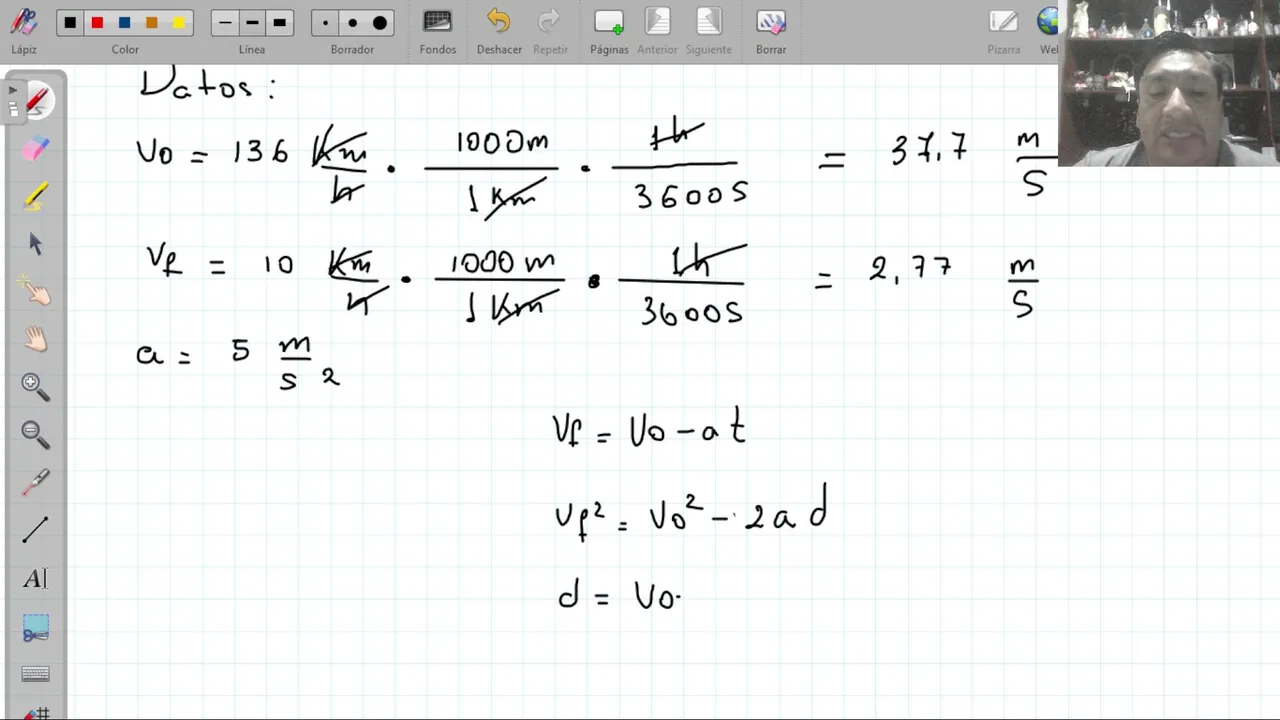 Lápiz Color Línea Borrador Fondos Deshacer Repetir Páginas Anterior Siguiente Borrar Pizarra
Datos:
Vo = 136 Km/h · 1000m/1Km · 1h/3600s = 37,7 m/s
Vf = 10 Km/h · 1000m/1Km · 1h/3600s = 2,77 m/s
a = 5 m/s2
Vf = Vo - at
Vf² = Vo² - 2ad
d = Vo·
A